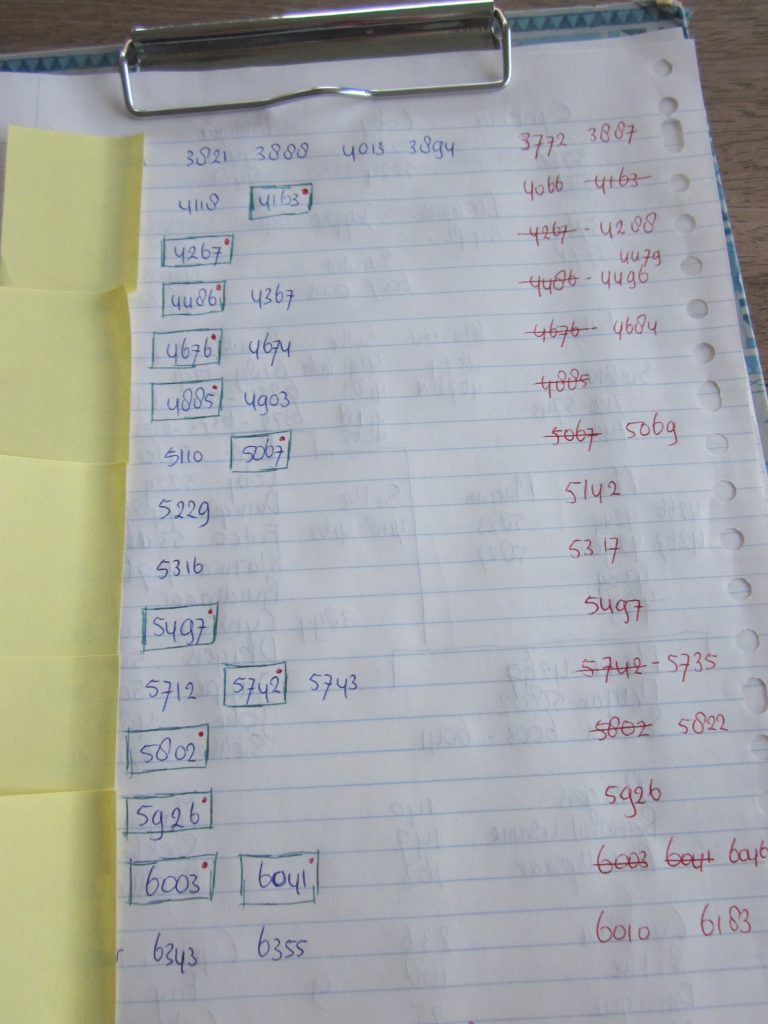 3821 3888 4013 3894 3772 3887
4118 4163 4066 4163
4267 4267 - 4288
4479
4486 4367 4486 - 4496
4676 4674 4676 - 4684
4885 4903 4885
5110 5067 5067 5069
5229 5142
5316 5317
5497 5497
5712 5742 5743 5742 - 5735
5802 5802 5822
5926 5926
6003 6041 6003 6041 6046
6343 6355 6010 6183